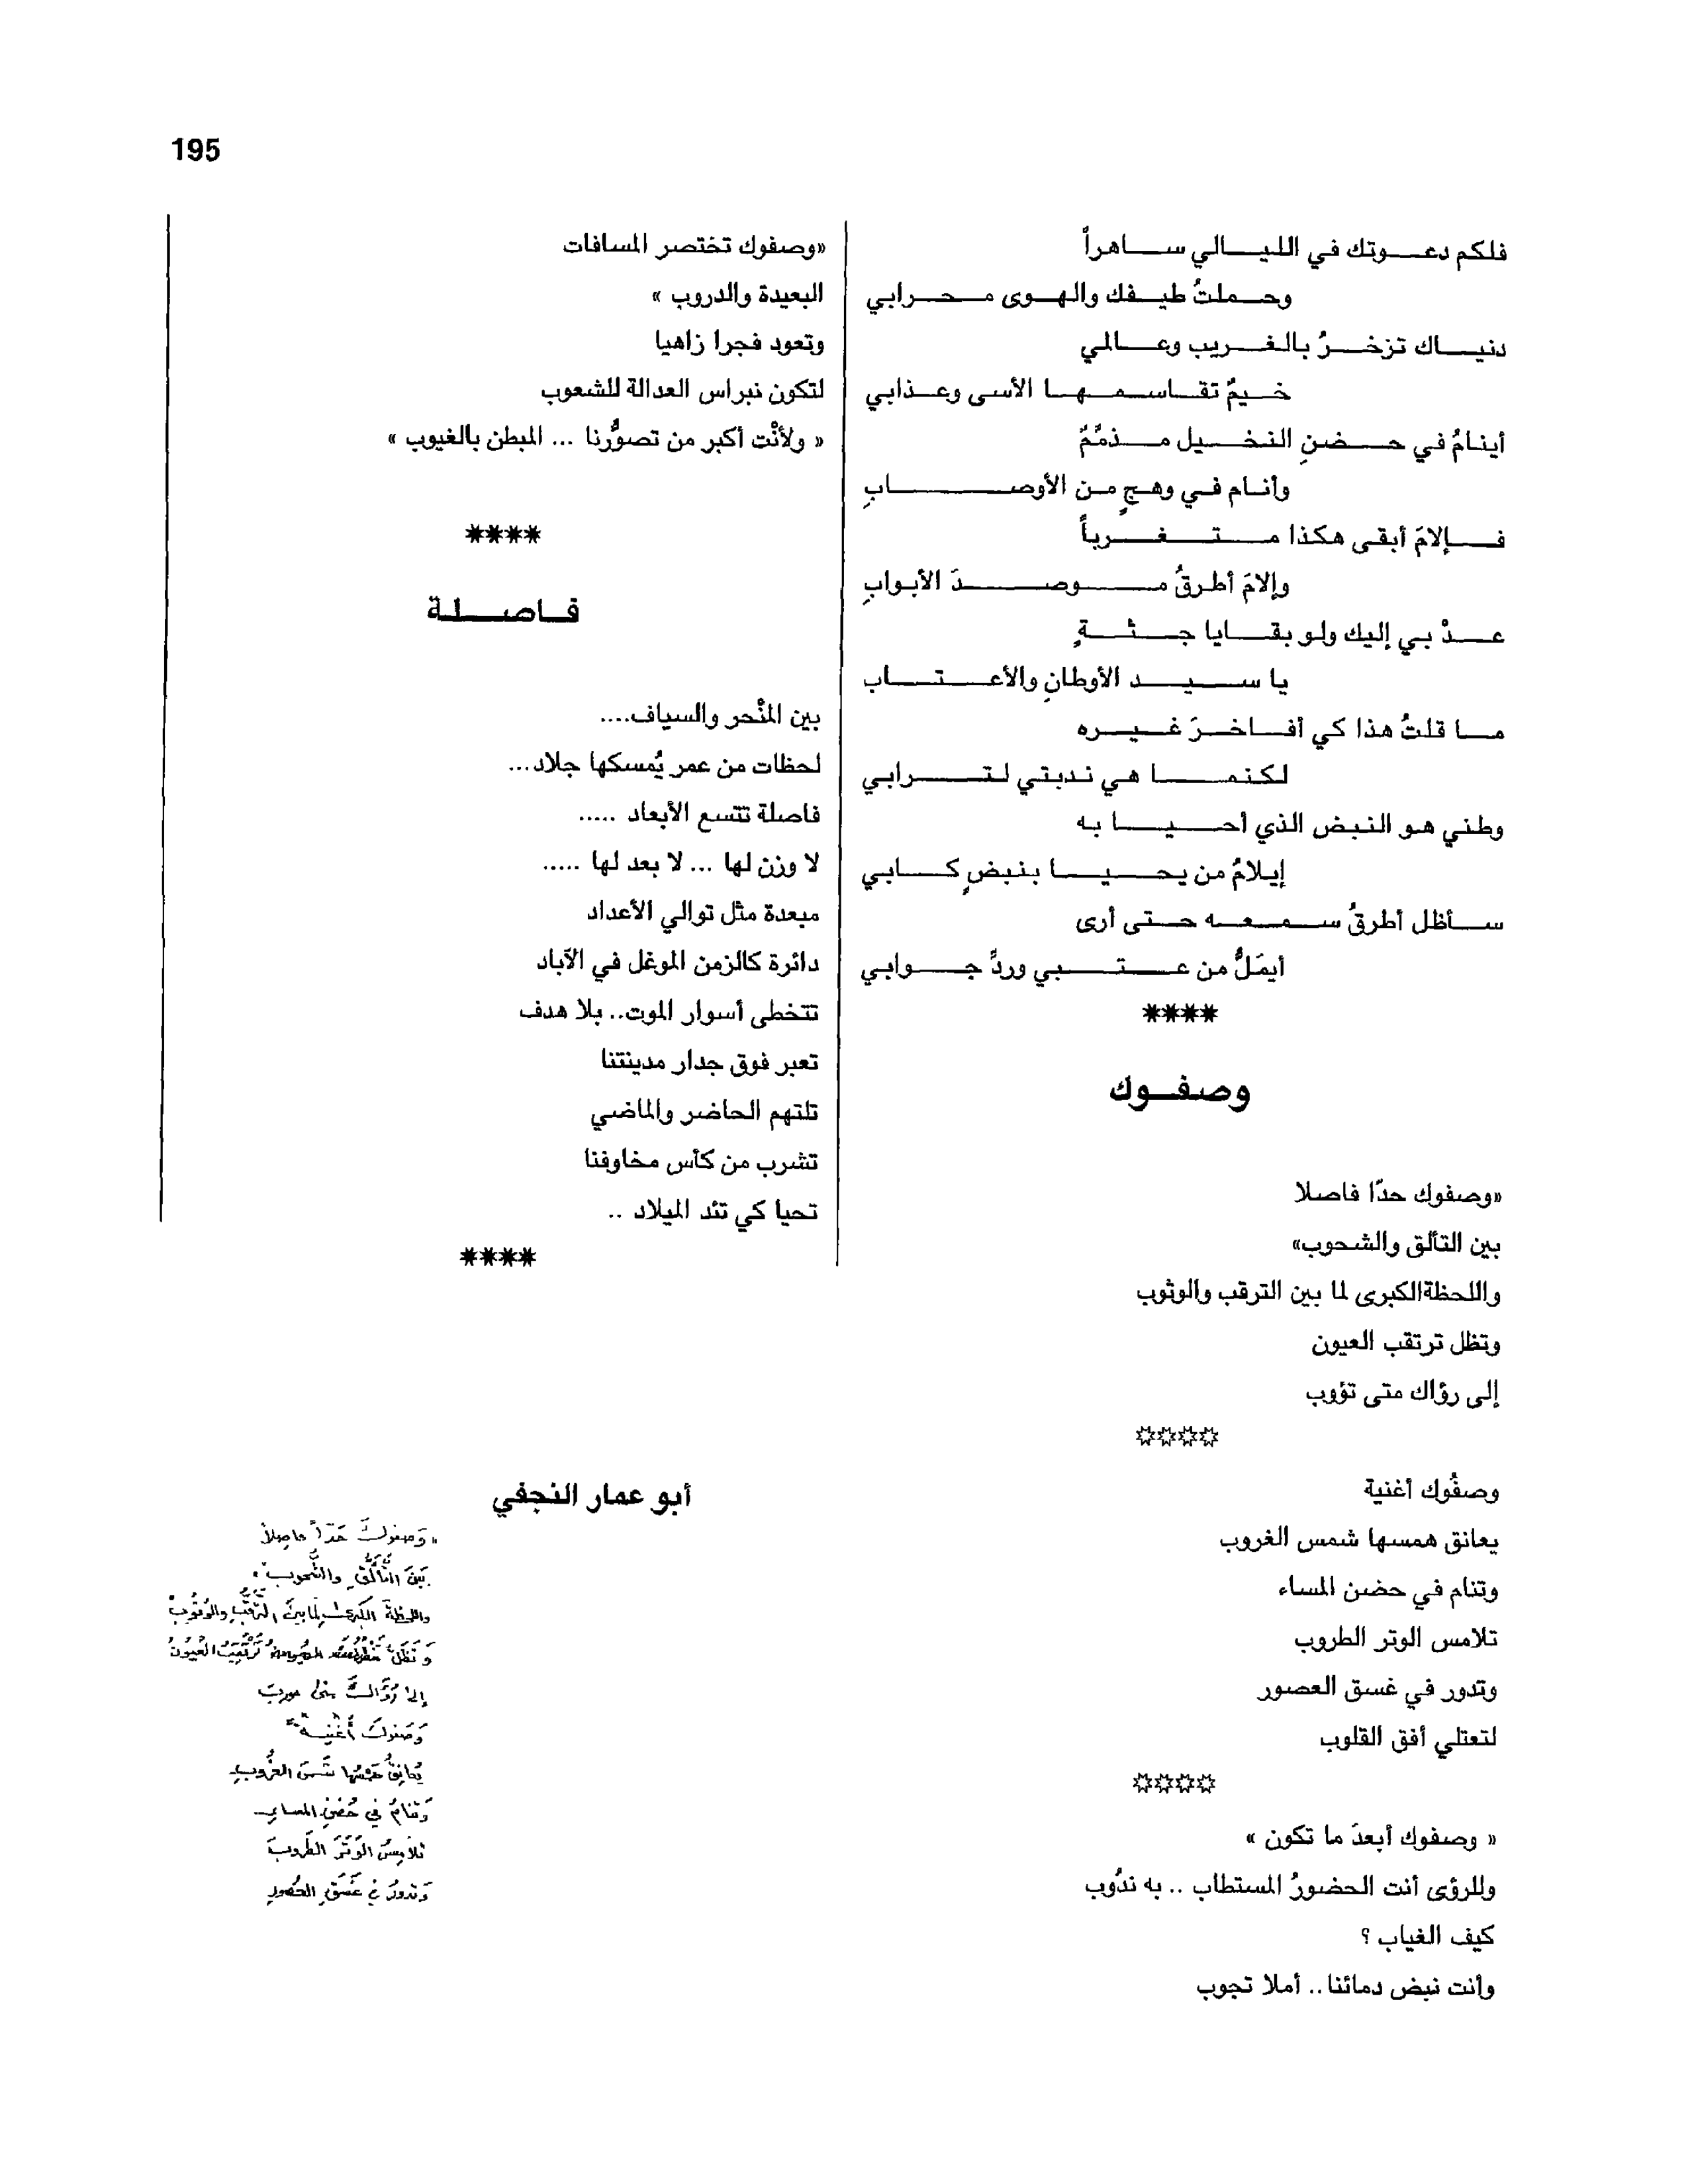 195
فلكم دعوتك في الليالي ساهراً
وحملتُ طيفك والهوى محرابي
دنياك تزخرُ بالغريب وعالمي
خيمٌ تقاسمها الأسى وعذابي
أينامُ في حضنِ النخيل مذمَّمٌ
وأنام في وهجٍ من الأوصابِ
فإلامَ أبقى هكذا متغرباً
وإلامَ أطرقُ موصدَ الأبوابِ
عدْ بي إليك ولو بقايا جثةٍ
يا سيد الأوطانِ والأعتاب
ما قلتُ هذا كي أفاخرَ غيره
لكنما هي ندبتي لترابي
وطني هو النبض الذي أحيا به
إيلامُ من يحيا بنبضٍ كابي
سأظل أطرقُ سمعه حتى أرى
أيمَلُّ من عتبي وردِّ جوابي
****
وصفوك
«وصفوك حدّا فاصلا
بين التألق والشحوب»
واللحظةالكبرى لما بين الترقب والوثوب
وتظل ترتقب العيون
إلى رؤاك متى تؤوب
****
وصفُوك أغنية
يعانق همسها شمس الغروب
وتنام في حضن المساء
تلامس الوتر الطروب
وتدور في غسق العصور
لتعتلي أفق القلوب
****
« وصفوك أبعدَ ما تكون »
وللرؤى أنت الحضورُ المستطاب .. به ندُوب
كيف الغياب ؟
وأنت نبض دمائنا.. أملا تجوب
«وصفوك تختصر المسافات
البعيدة والدروب »
وتعود فجرا زاهيا
لتكون نبراس العدالة للشعوب
« ولأنْت أكبر من تصوُّرنا ... المبطن بالغيوب »
****
فاصلة
بين المنْحر والسياف....
لحظات من عمر يُمسكها جلاد...
فاصلة تتسع الأبعاد .....
لا وزن لها ... لا بعد لها .....
مبعدة مثل توالي الأعداد
دائرة كالزمن الموغل في الآباد
تتخطى أسوار الموت.. بلا هدف
تعبر فوق جدار مدينتنا
تلتهم الحاضر والماضي
تشرب من كأس مخاوفنا
تحيا كي تئد الميلاد ..
****
أبو عمار النجفي
« وَصفوكَ حَدّاً فاصِلاً
بَينَ التَّألُّقِ والشُّحوبِ »
واللحظةَ الكبرى لِما بينَ الترقّبِ والوُثُوبْ
وَتَظَلُّ تَرْتَقِبُ العُيونُ
إلى رُؤاكَ متى تؤوبْ
وَصَفوكَ أُغنيةً
يُعانِقُ هَمْسُها شَمسَ الغُروبِ
وَتنامُ في حُضنِ المساءِ
تُلامِسُ الوَتَرَ الطَّروبَ
وَتدورُ في غَسَقِ العُصورِ